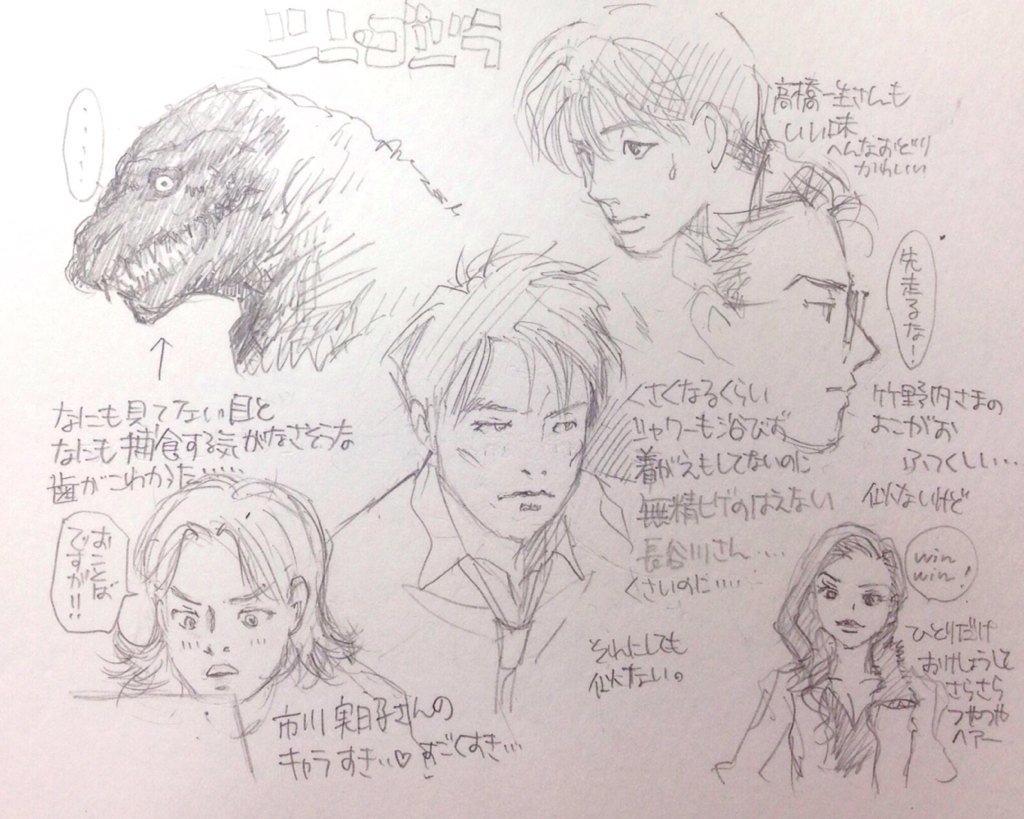 シン・ゴジラ
・・・・
なにも見てない目と
なにも捕食する気がなさそうな
歯がこわかった……
高橋一生さんも
いい味
へんなおどり
かわいい
先走るな！
竹野内さまの
おこがお
ふつくしい…
似ないけど
くさくなるくらい
シャワーも浴びず
着がえもしてないのに
無精ヒゲのはえない
長谷川さん….
くさいのに….
それにしても
似てない。
おことば
ですが!!
市川実日子さんの
キャラすき…♡すごくすき…
win
win!
ひとりだけ
おけしょうして
さらさら
つやつや
ヘアー